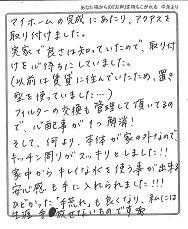 あなたの場からの「お声」をきかせください
マイホームの完成にあたり、アクアスを
取り付けました。
実家で良さは知っていたので、取り付
けを心待ちにしていました。
(以前は賃貸に住んでいたため、置き
型を使っていました…)
フィルターの交換も管理して頂いてるの
で、心配事が1つ解消!
そして、何より、本体が家の外なので、
キッチン周りがスッキリとしました!!
家中からキレイな水を使う事が出来る
安心感も手に入れられました!!!
ひどかった"手荒れ"も良くなり、私には
生涯、手放せないもので